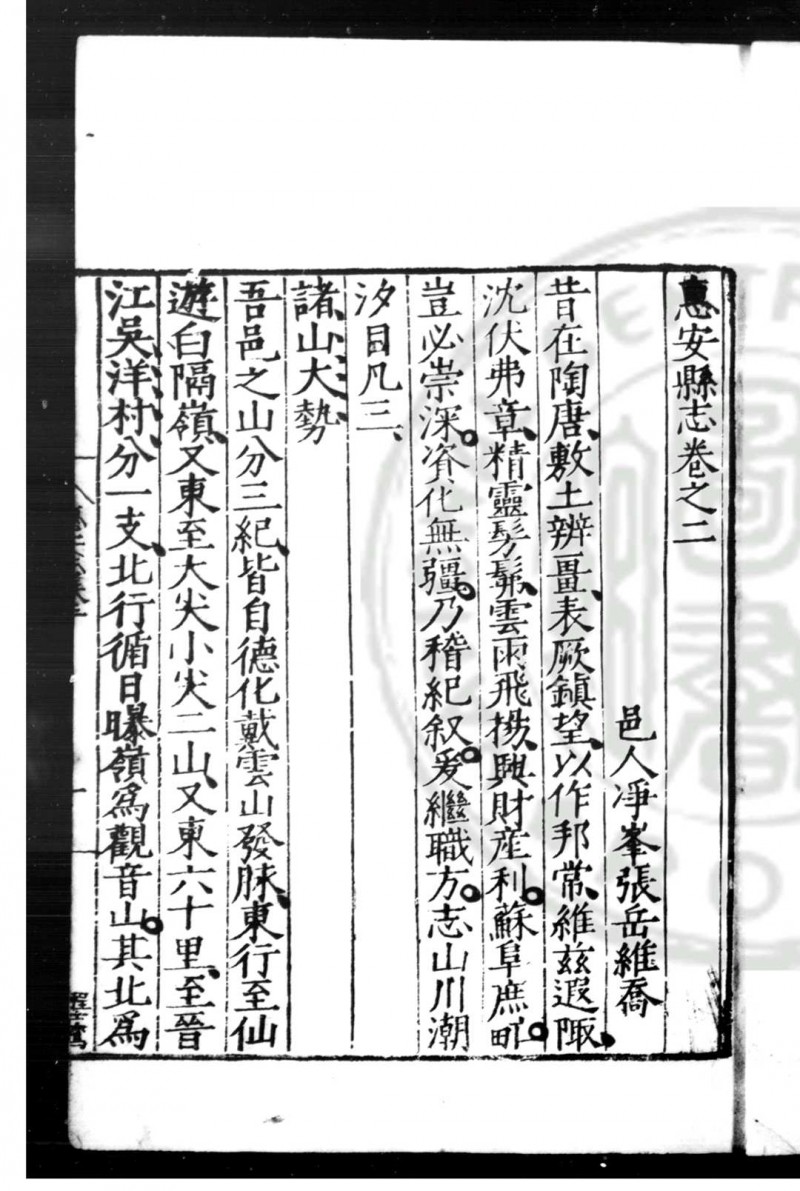 惠安縣志卷之二
邑人淨峯張岳維喬
昔在陶唐、敷土辨畺、表厥鎮望、以作邦常、維茲遐陬、
沈伏弗章、精靈髣髴、雲雨飛揚、興財產利。蘇阜庶甿。
豈必崇深。資化無疆。乃稽紀叙。爰繼職方。志山川潮
汐目凡三、
諸山大勢
吾邑之山分三紀、皆自德化戴雲山發脉、東行至仙
遊白隔嶺、又東至大尖小尖二山、又東六十里、至晉
江吳洋村、分一支、北行循日曝嶺為觀音山。其北為